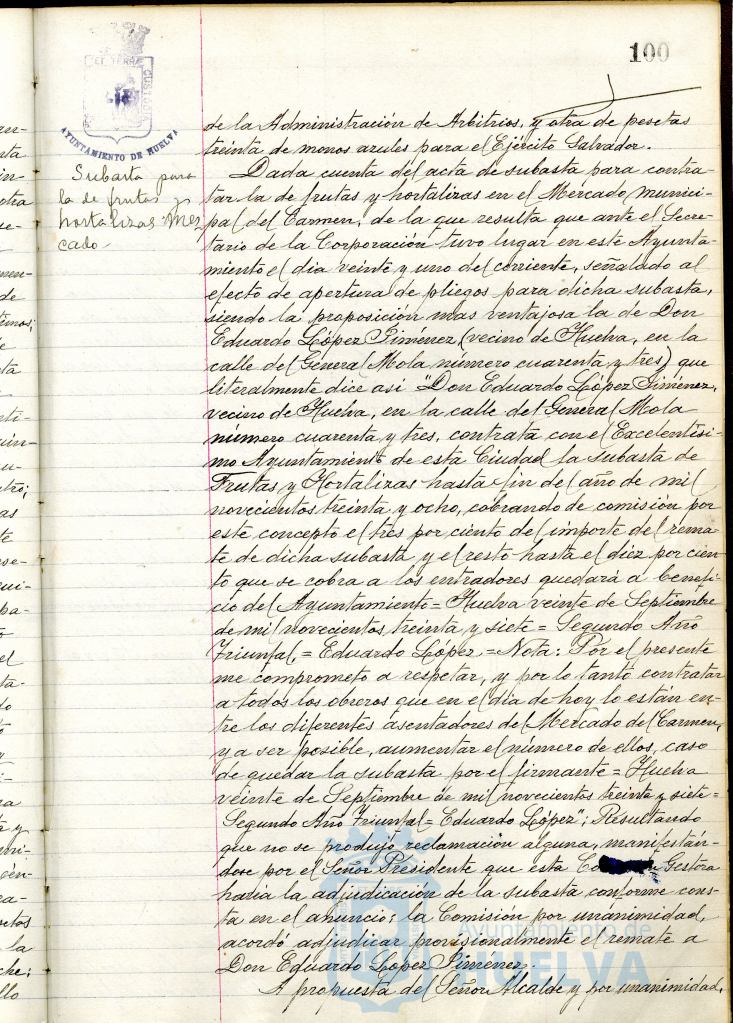 100
ET TERRÆ
CUSTODIA
AYUNTAMIENTO DE HUELVA
Subasta para
la de frutas y
hortalizas Mer
cado.
de la Administración de Arbitrios, y otra de pesetas
treinta de monos azules para el Ejército Salvador.
Dada cuenta del acta de subasta para contra-
tar la de frutas y hortalizas en el Mercado munici-
pal del Carmen, de la que resulta que ante el Secre-
tario de la Corporación tuvo lugar en este Ayunta-
miento el dia veinte y uno del corriente, señalado al
efecto de apertura de pliegos para dicha subasta,
siendo la proposición mas ventajosa la de Don
Eduardo López Jiménez, (vecino de Huelva, en la
calle del General Mola número cuarenta y tres) que
literalmente dice asi "Don Eduardo López Jiménez,
vecino de Huelva, en la calle del General Mola
número cuarenta y tres, contrata con el Excelentísi-
mo Ayuntamiento de esta Ciudad la subasta de
Frutas y Hortalizas hasta fin del año de mil
novecientos treinta y ocho, cobrando de comisión por
este concepto el tres por ciento del importe del rema-
te de dicha subasta y el resto hasta el diez por cien-
to que se cobra a los entradores quedará a benefi-
cio del Ayuntamiento = Huelva veinte de Septiembre
de mil novecientos treinta y siete = Segundo Año
Triunfal, = Eduardo López = Nota: Por el presente
me comprometo a respetar, y por lo tanto contratar
a todos los obreros que en el día de hoy lo están en-
tre los diferentes asentadores del Mercado del Carmen,
y a ser posible, aumentar el número de ellos, caso
de quedar la subasta por el firmante = Huelva
veinte de Septiembre de mil novecientos treinta y siete =
Segundo Año Triunfal = Eduardo López"; Resultando
que no se produjo reclamación alguna, manifestán-
dose por el Señor Presidente que esta Gestora
haria la adjudicación de la subasta conforme cons-
ta en el anuncio; la Comisión por unanimidad,
acordó adjudicar provisionalmente el remate a
Don Eduardo López Jimenez.
A propuesta del Señor Alcalde y por unanimidad,
Ayuntamiento de
HUELVA